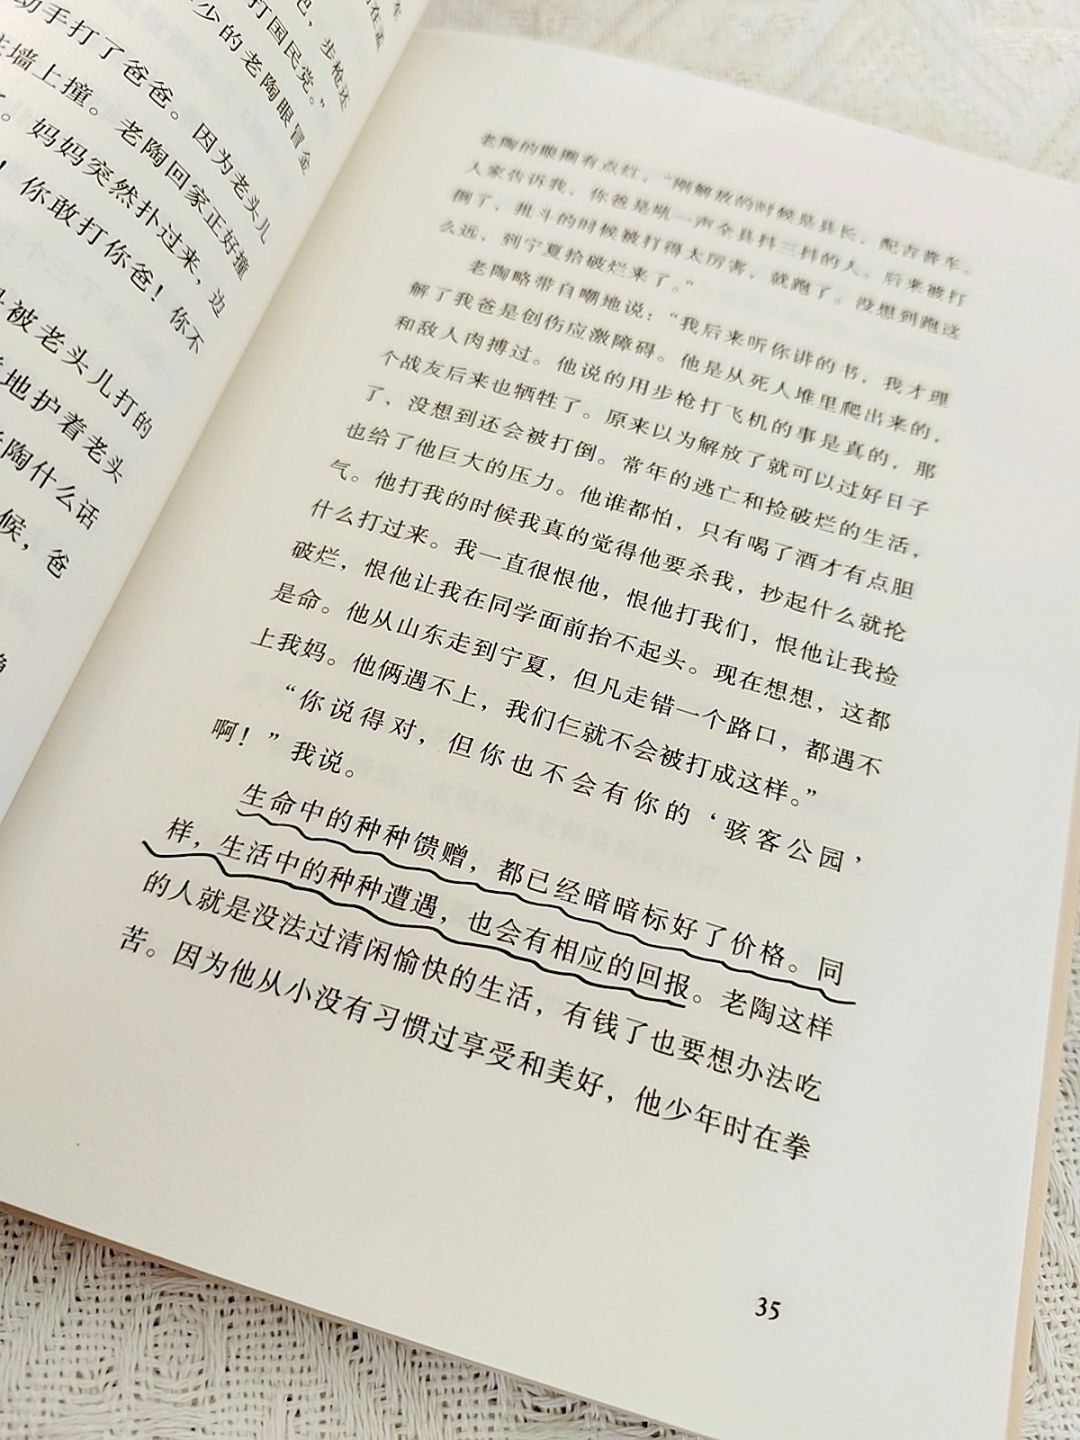 步枪还
打国民党。”
少的老陶眼冒金
动手打了爸爸。因为老头儿
墙上撞。老陶回家正好撞
妈妈突然扑过来，边
！你敢打你爸！你不
被老头儿打的
地护着老头
陶什么话
候，爸
老陶的眼圈有点红，“刚解放的时候是县长，配吉普车。
人家告诉我，你爸是吼一声全县抖三抖的人。后来被打
倒了，批斗的时候被打得太厉害，就跑了。没想到跑这
么远，到宁夏拾破烂来了。”
老陶略带自嘲地说：“我后来听你讲的书，我才理
解了我爸是创伤应激障碍。他是从死人堆里爬出来的，
和敌人肉搏过。他说的用步枪打飞机的事是真的，那
个战友后来也牺牲了。原来以为解放了就可以过好日子
了，没想到还会被打倒。常年的逃亡和捡破烂的生活，
也给了他巨大的压力。他谁都怕，只有喝了酒才有点胆
气。他打我的时候我真的觉得他要杀我，抄起什么就抡
什么打过来。我一直很恨他，恨他打我们，恨他让我捡
破烂，恨他让我在同学面前抬不起头。现在想想，这都
是命。他从山东走到宁夏，但凡走错一个路口，都遇不
上我妈。他俩遇不上，我们仨就不会被打成这样。”
“你说得对，但你也不会有你的‘骇客公园’
啊！”我说。
生命中的种种馈赠，都已经暗暗标好了价格。同
样，生活中的种种遭遇，也会有相应的回报。老陶这样
的人就是没法过清闲愉快的生活，有钱了也要想办法吃
苦。因为他从小没有习惯过享受和美好，他少年时在拳
35